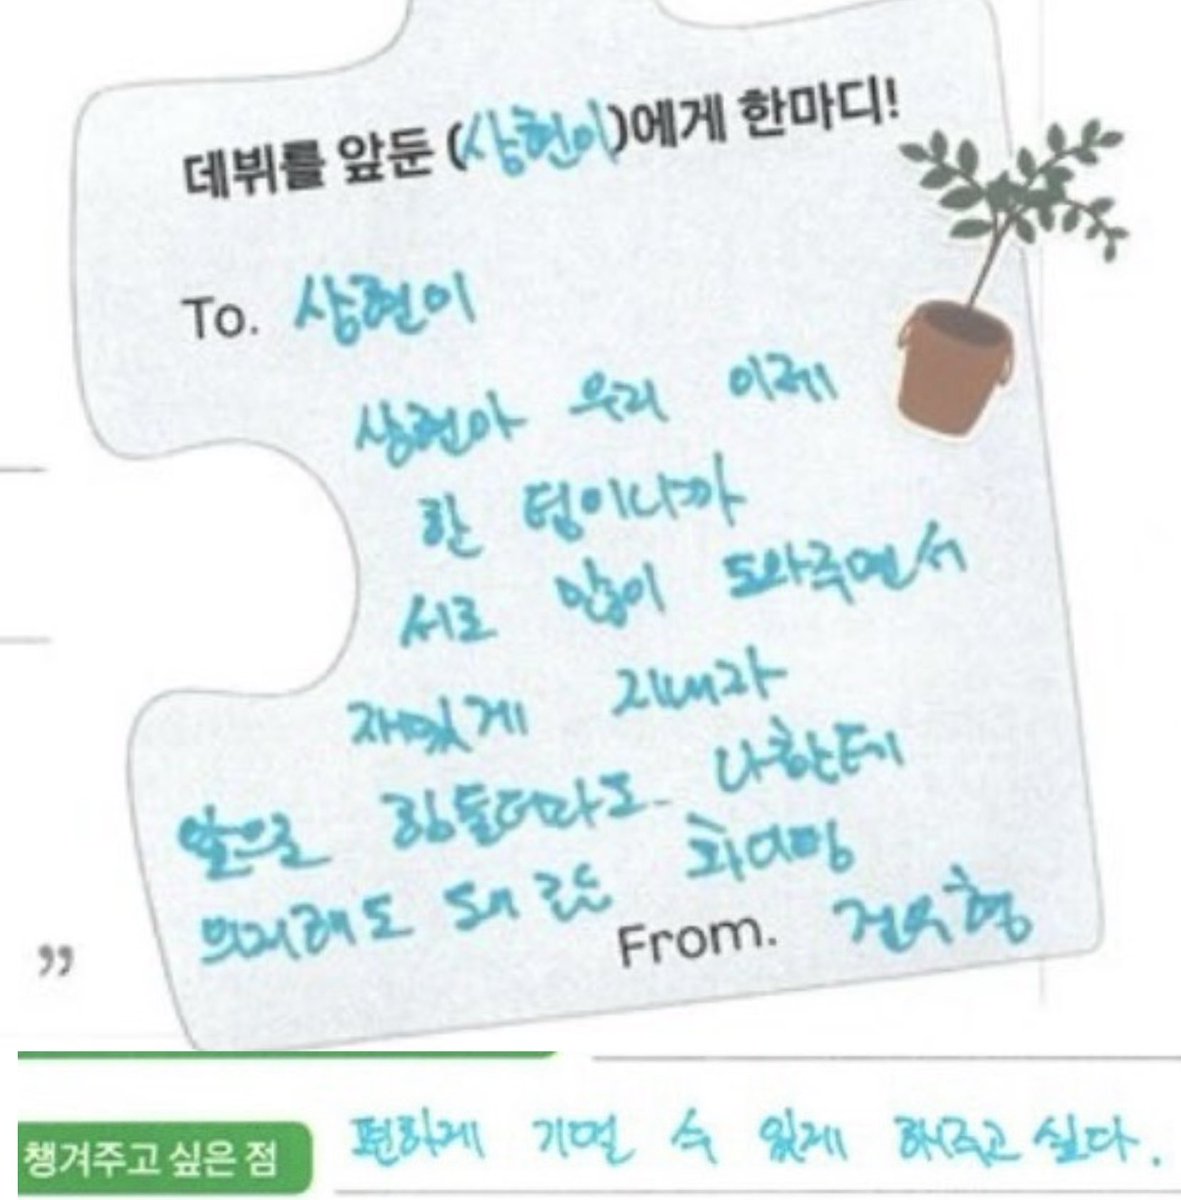 데뷔를 앞둔 (상현이)에게 한마디!
To. 상현이
상현아 우리 이제
한 팀이니까
서로 많이 도와주면서
재밌게 지내자
앞으로 힘들더라도 나한테
의지해도 돼 화이팅
From. 건우형
”
챙겨주고 싶은 점
편하게 기댈 수 있게 해주고 싶다.